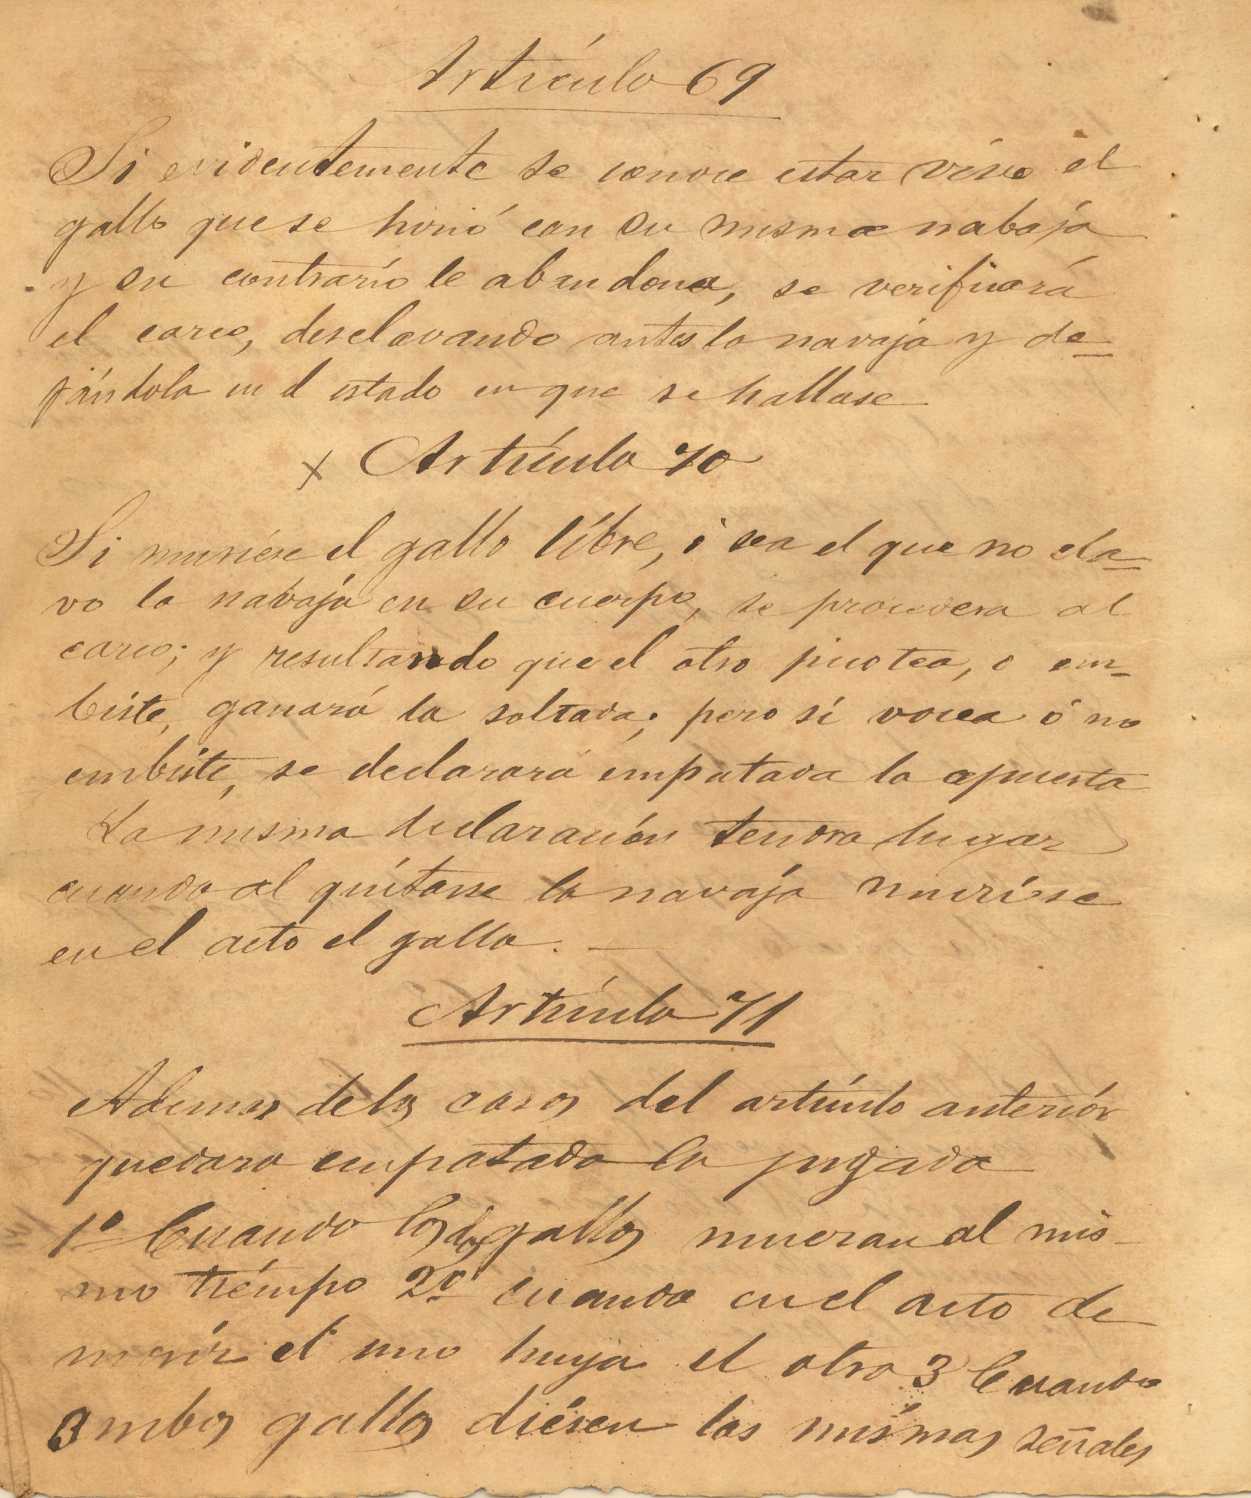 Artículo 69
Si evidentemente se conoce estar vivo el
gallo que se hirió con su misma nabaja
y su contrario le abandona, se verificará
el careo, desclavando antes la navaja y de=
jándola en el estado en que se hallase
x Artículo 70
Si muriese el gallo libre, ó sea el que no cla=
vo la nabaja en su cuerpo, se procedera al
careo; y resultando que el otro picotea, o em-
biste, ganará la soltada; pero si vocea ó no
embiste, se declarará empatada la apuesta
La misma declaración tendra lugar
cuando al quitarse la navaja muriese
en el acto el gallo. —
Artículo 71
Ademas de los casos del artículo anteriór
quedara empatada la jugada
1º Cuando los dos gallos mueran al mis-
mo tiempo 2º cuando en el acto de
morir el uno huya el otro 3 Cuando
ambos gallos diesen las mismas señales